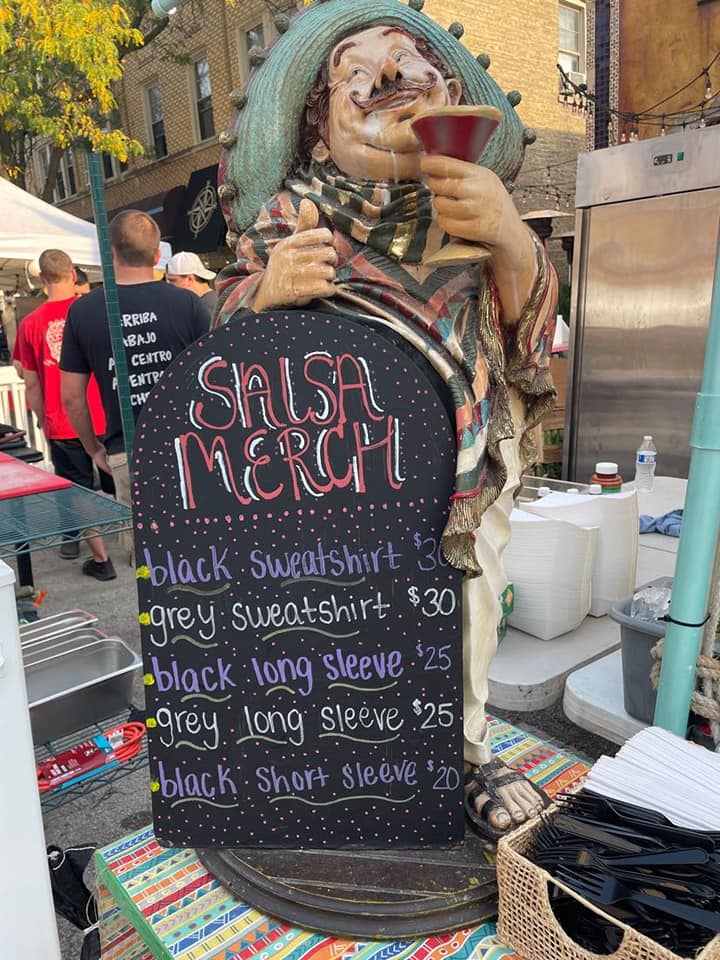 SALSA
MERCH
black sweatshirt $30
grey sweatshirt $30
black long sleeve $25
grey long sleeve $25
black short sleeve $20
RRIBA
ABAJO
CENTRO